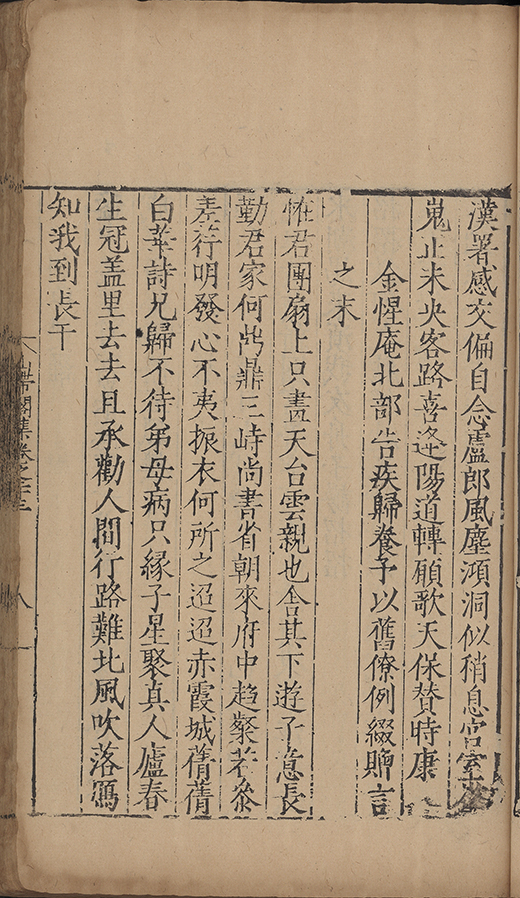 漢署感交偏自念盧郎風塵澒洞似稍息宮室
嵬止未央客路喜逢陽道轉願歌天保賛時康
金惺庵比部告疾歸養予以舊僚例綴贈言
之末
怪君團扇上只畫天台雲親也舍其下遊子意長
勤君家何所鼎三峙尚書省朝來府中趨粲若參
差荇明發心不夷振衣何所之迢迢赤霞城蒨蒨
白華詩兄歸不待弟母病只緣子星聚真人廬春
生冠盖里去去且承勸人間行路難北風吹落鴈
知我到長干
閣集卷之
八